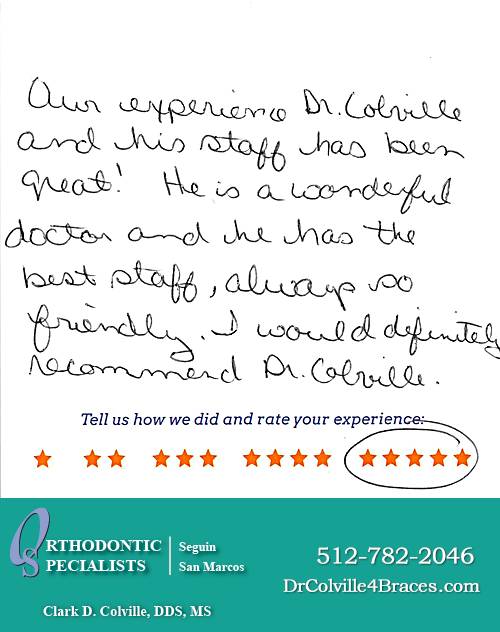 Our experience Dr. Colville
and his staff has been
great! He is a wonderful
doctor and he has the
best staff, always so
friendly. I would definitely
recommend Dr. Colville.
Tell us how we did and rate your experience:
ORTHODONTIC SPECIALISTS
Seguin
San Marcos
512-782-2046
DrColville4Braces.com
Clark D. Colville, DDS, MS